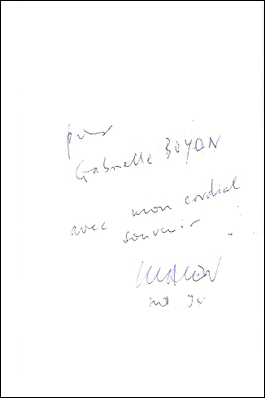 pour
Gabrielle BOYON
avec mon cordial
souvenir